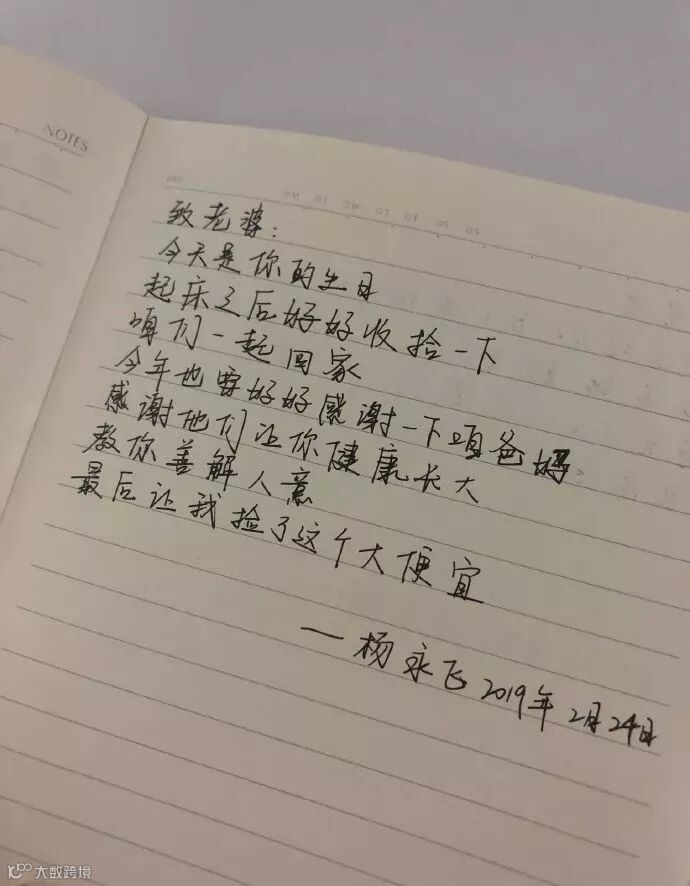 NOTES
致老婆：
今天是你的生日
起床之后好好收拾一下
咱们一起回家
今年也要好好感谢一下咱爸妈
感谢他们让你健康长大
教你善解人意
最后让我捡了这个大便宜
——杨永飞 2019年2月24日
大数跨境